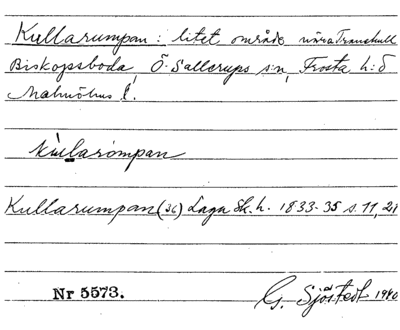 Kullarumpan: litet område nära Tranekull
Biskopsboda, Ö. Sallerups sn, Frosta h:d
Malmöhus l.
Kullarumpan (sc) Laga Sk. h. 1833-35 s. 11, 21
Nr 5573.
G. Sjöstedt 1940